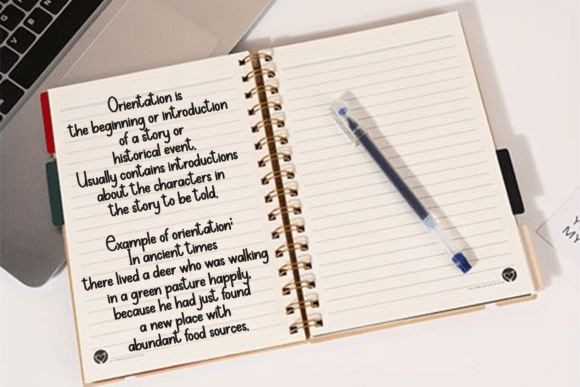 Orientation is
the beginning or introduction
of a story or
historical event.
Usually contains introductions
about the characters in
the story to be told.
Example of orientation'
In ancient times
there lived a deer who was walking
in a green pasture happily.
because he had just found
a new place with
abundant food sources.
Y
MY